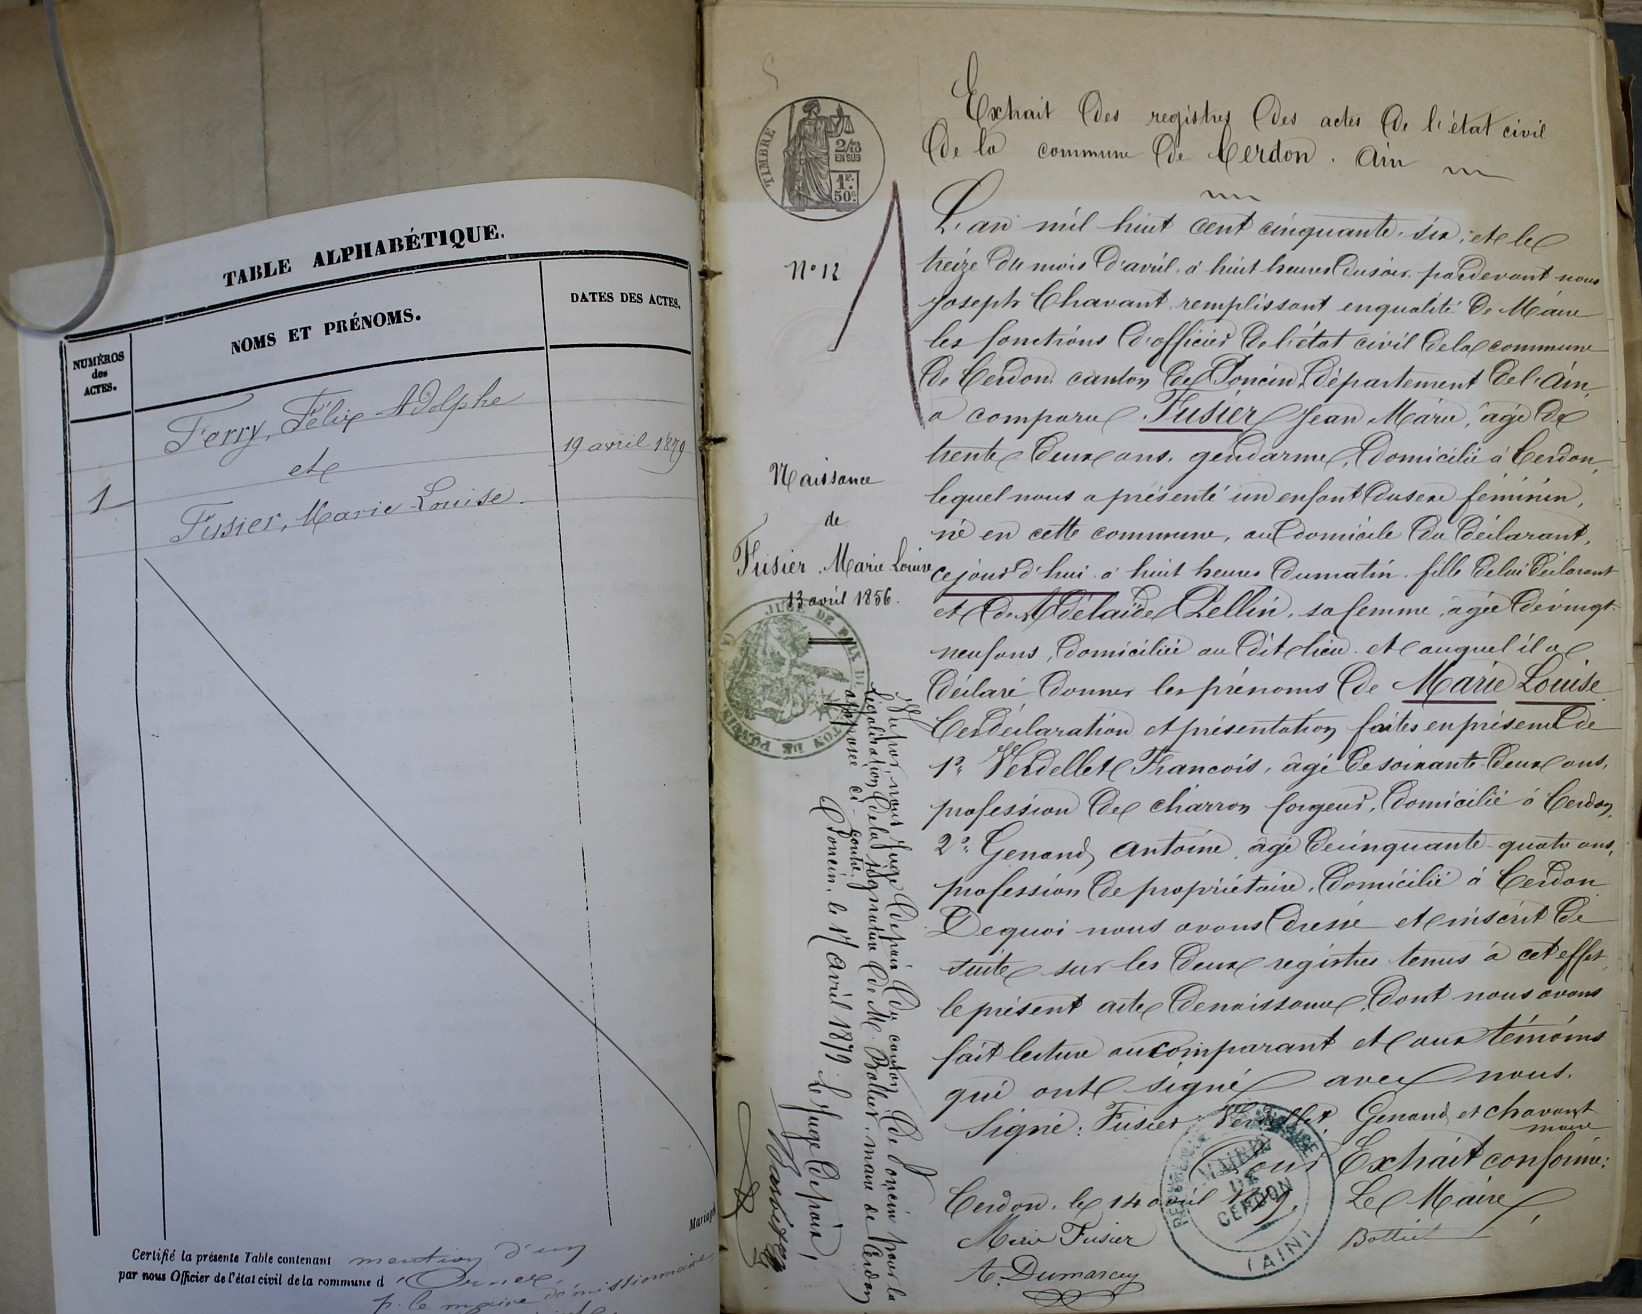 TABLE ALPHABÉTIQUE.
NUMÉROS
des
ACTES.
NOMS ET PRÉNOMS.
DATES DES ACTES.
Ferry, Félix Adolphe
et
1
Fusier, Marie-Louise
19 avril 1879
Certifié la présente Table contenant mention d'un
par nous Officier de l'état civil de la commune d'Ornex
p. le maire démissionnaire
TIMBRE
2/10
EN SUS
1F.
50c.
Extrait des registres des actes de l'état civil
de la commune de Cerdon. Ain
N° 12
Naissance
de
Fusier Marie Louise
13 avril 1856.
L'an mil huit cent cinquante-six, et le
treize du mois d'avril à huit heures du soir, par devant nous
Joseph Chavant remplissant en qualité de Maire
les fonctions d'officier de l'état civil de la commune
de Cerdon canton de Poncin, département de l'Ain,
a comparu Fusier Jean Marie, âgé de
trente deux ans, gendarme, domicilié à Cerdon,
lequel nous a présenté un enfant du sexe féminin,
né en cette commune, au domicile du déclarant,
ce jourd'hui à huit heures du matin, fille de lui déclarant
et de Adélaïde Pellin, sa femme, âgée de vingt-
neuf ans, domiciliée au dit lieu et auquel il a
déclaré donner les prénoms de Marie Louise.
Ces déclaration et présentation faites en présence de
1° Verdellet François, âgé de soixante deux ans,
profession de charron forgeur, domicilié à Cerdon,
2° Genand Antoine, âgé de cinquante-quatre ans,
profession de propriétaire, domicilié à Cerdon
De quoi nous avons dressé et inscrit de
suite sur les deux registres tenus à cet effet,
le présent acte de naissance, dont nous avons
fait lecture au comparant et aux témoins
qui ont signé avec nous.
Signé: Fusier Verdellet, Genand et Chavant
maire
Pour Extrait conforme:
Cerdon, le 14 avril 1879. Le Maire,
Marie Fusier
A. Dumarcey
MAIRIE
DE
CERDON
(AIN)
JUGE DE PAIX DU
CANTON DE PONCIN
Vu par nous Juge de paix du canton de Poncin pour la
légalisation de la signature de M. Bottier, maire de Cerdon
apposée ci-contre.
Poncin, le 17 avril 1879. Le Juge de paix,